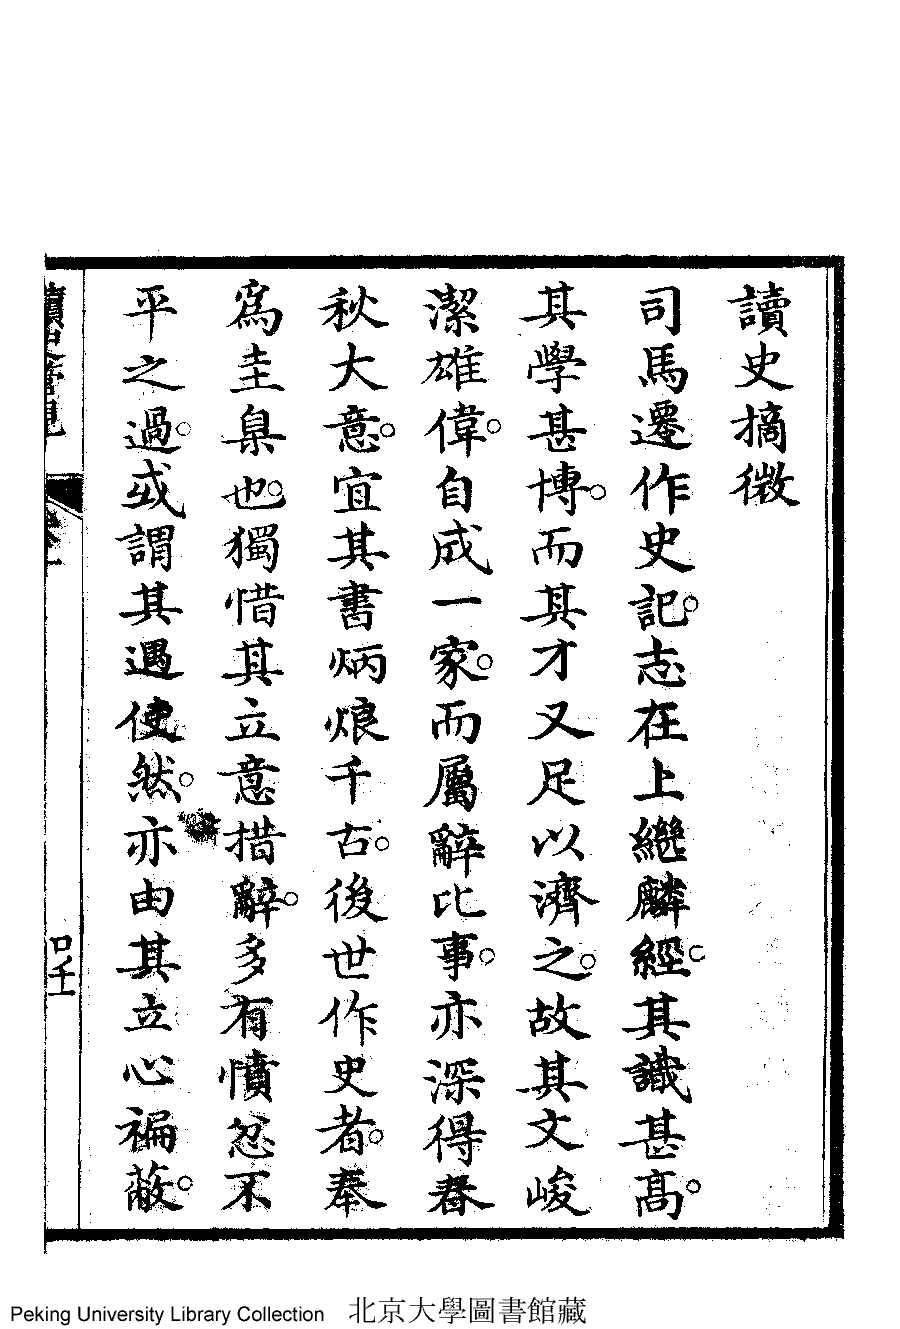 讀史摘微
司馬遷作史記。志在上繼麟經。其識甚高。
其學甚博。而其才又足以濟之。故其文峻
潔雄偉。自成一家。而屬辭比事。亦深得春
秋大意。宜其書炳烺千古。後世作史者。奉
爲圭臬也。獨惜其立意措辭。多有憤忿不
平之過。或謂其遇使然。亦由其立心褊蔽。
讀史管見
卷一
Peking University Library Collection 北京大學圖書館藏